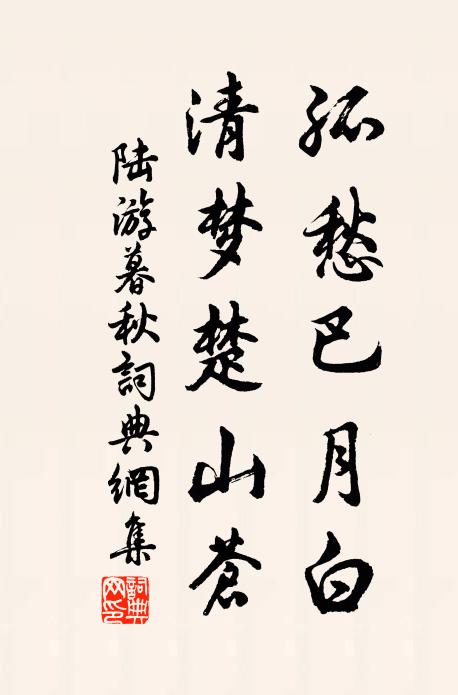 孤愁巴月白
清梦楚山苍
陆游暮秋詞典網集
詞典
网印